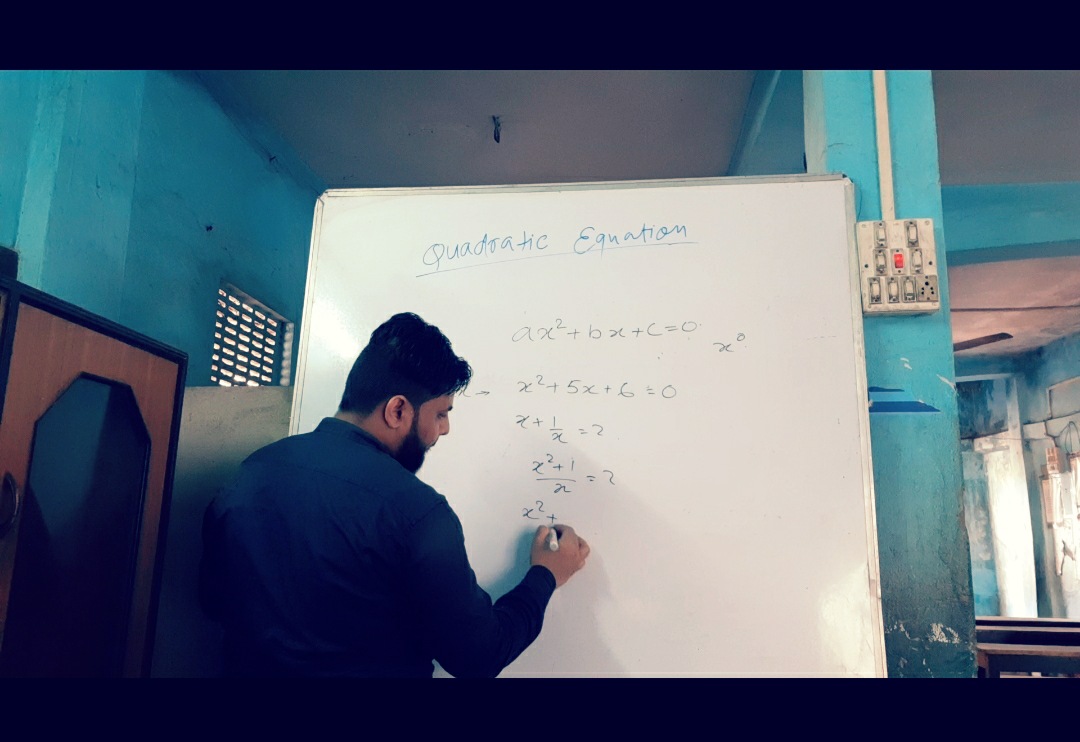 Quadratic Equation
ax²+bx+c=0
x⁰
x → x²+5x+6=0
x+1/x=2
(x²+1)/x=2
x²+